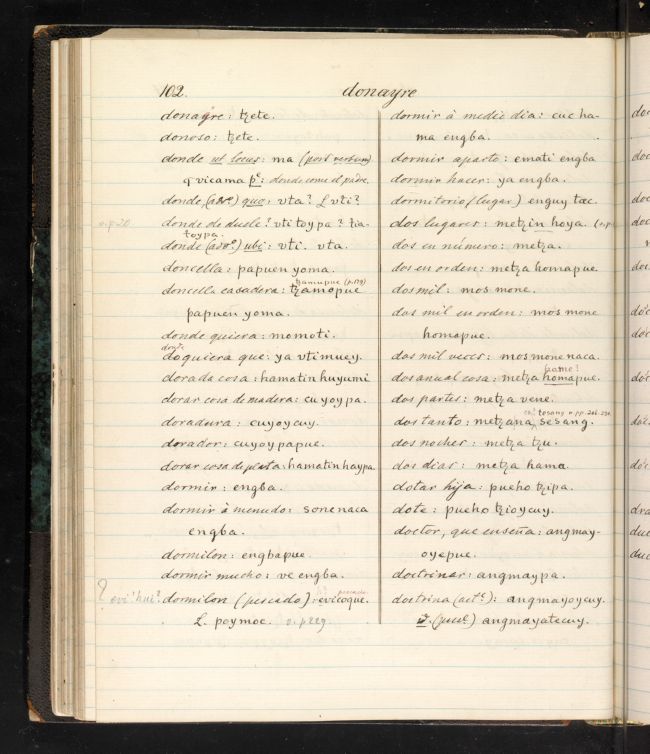 102. donayre
donayre: tzete.
donoso: tzete.
donde ut locus: ma (post verbum)
q vicama pe: donde come el padre.
donde, (advo) quo: vta? L vti?
v. p. 20 donde te duele? vti toypa? tia-
toypa.
donde (advo) ubi: vti. vta.
doncella: papuen yoma.
tzamupue (p. 179)
doncella casadera: tzamopue
papuen yoma.
donde quiera: momoti.
donde
doquiera que: ya vtimuey.
dorada cosa: hamatin huyumi
dorar cosa de madera: cuyoypa.
doradura: cuyoycuy.
dorador: cuyoypapue.
dorar cosa de plata: hamatin haypa.
dormir: engba.
dormir à menudo: sonenaca
engba.
dormilon: engbapue.
dormir mucho: ve engba.
pescado
? evi'hui? dormilon (pescado): evicoque.
L. poymoc. v. p 229
dormir à medio dia: cuc ha-
ma engba.
dormir aparto: emati engba
dormir hacer: ya engba.
dormitorio (lugar) enguy tac.
dos lugares: metzin hoya.
dos en número: metza.
dos en orden: metza homapue
dos mil: mos mone.
dos mil en orden: mos mone
homapue.
dos mil veces: mos mone naca.
came?
dos anual cosa: metza homapue.
dos partes: metza vene.
tosang v. pp.
dos tanto: metzana sesang.
dos noches: metza tzu.
dos dias: metza hama.
dotar hija: pueho tzipa.
dote: pueho tzioycuy.
doctor, que enseña: angmay-
oyepue.
doctrinar: angmaypa.
doctrina (acte): angmayoycuy.
I. (puce) angmayatecuy.